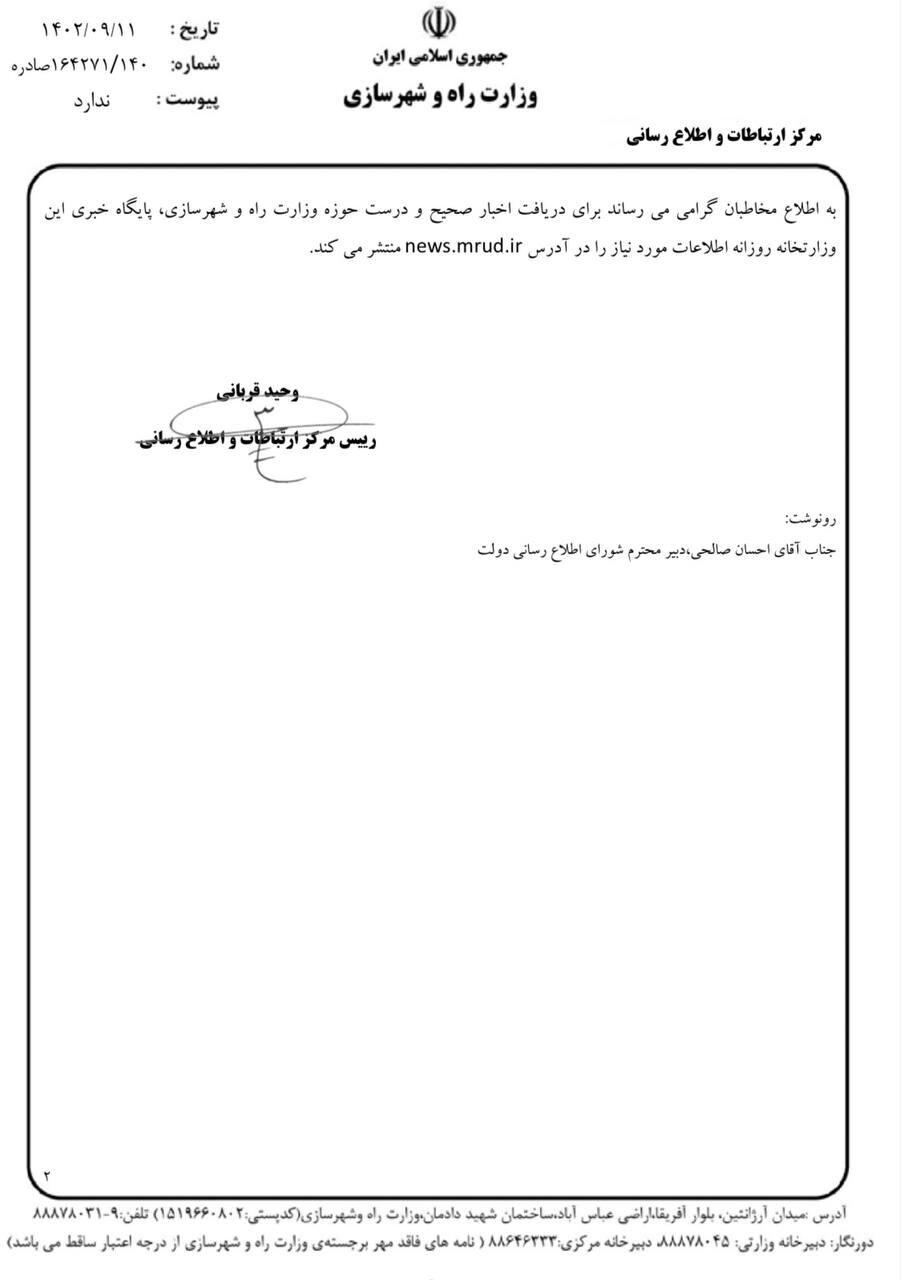 تاریخ : ۱۴۰۲/۰۹/۱۱
شماره: ۱۶۴۲۷۱/۱۴۰صادره
پیوست : ندارد
جمهوری اسلامی ایران
وزارت راه و شهرسازی
مرکز ارتباطات و اطلاع رسانی
به اطلاع مخاطبان گرامی می رساند برای دریافت اخبار صحیح و درست حوزه وزارت راه و شهرسازی، پایگاه خبری این
وزارتخانه روزانه اطلاعات مورد نیاز را در آدرس news.mrud.ir منتشر می کند.
وحید قربانی
رییس مرکز ارتباطات و اطلاع رسانی
رونوشت:
جناب آقای احسان صالحی،دبیر محترم شورای اطلاع رسانی دولت
۲
آدرس :میدان آرژانتین، بلوار آفریقا،اراضی عباس آباد،ساختمان شهید دادمان،وزارت راه وشهرسازی(کدپستی:۱۵۱۹۶۶۰۸۰۲) تلفن:۹-۸۸۸۷۸۰۳۱
دورنگار: دبیرخانه وزارتی: ۸۸۸۷۸۰۴۵، دبیرخانه مرکزی:۸۸۶۴۶۳۳۳ ( نامه های فاقد مهر برجسته‌ی وزارت راه و شهرسازی از درجه اعتبار ساقط می باشد)